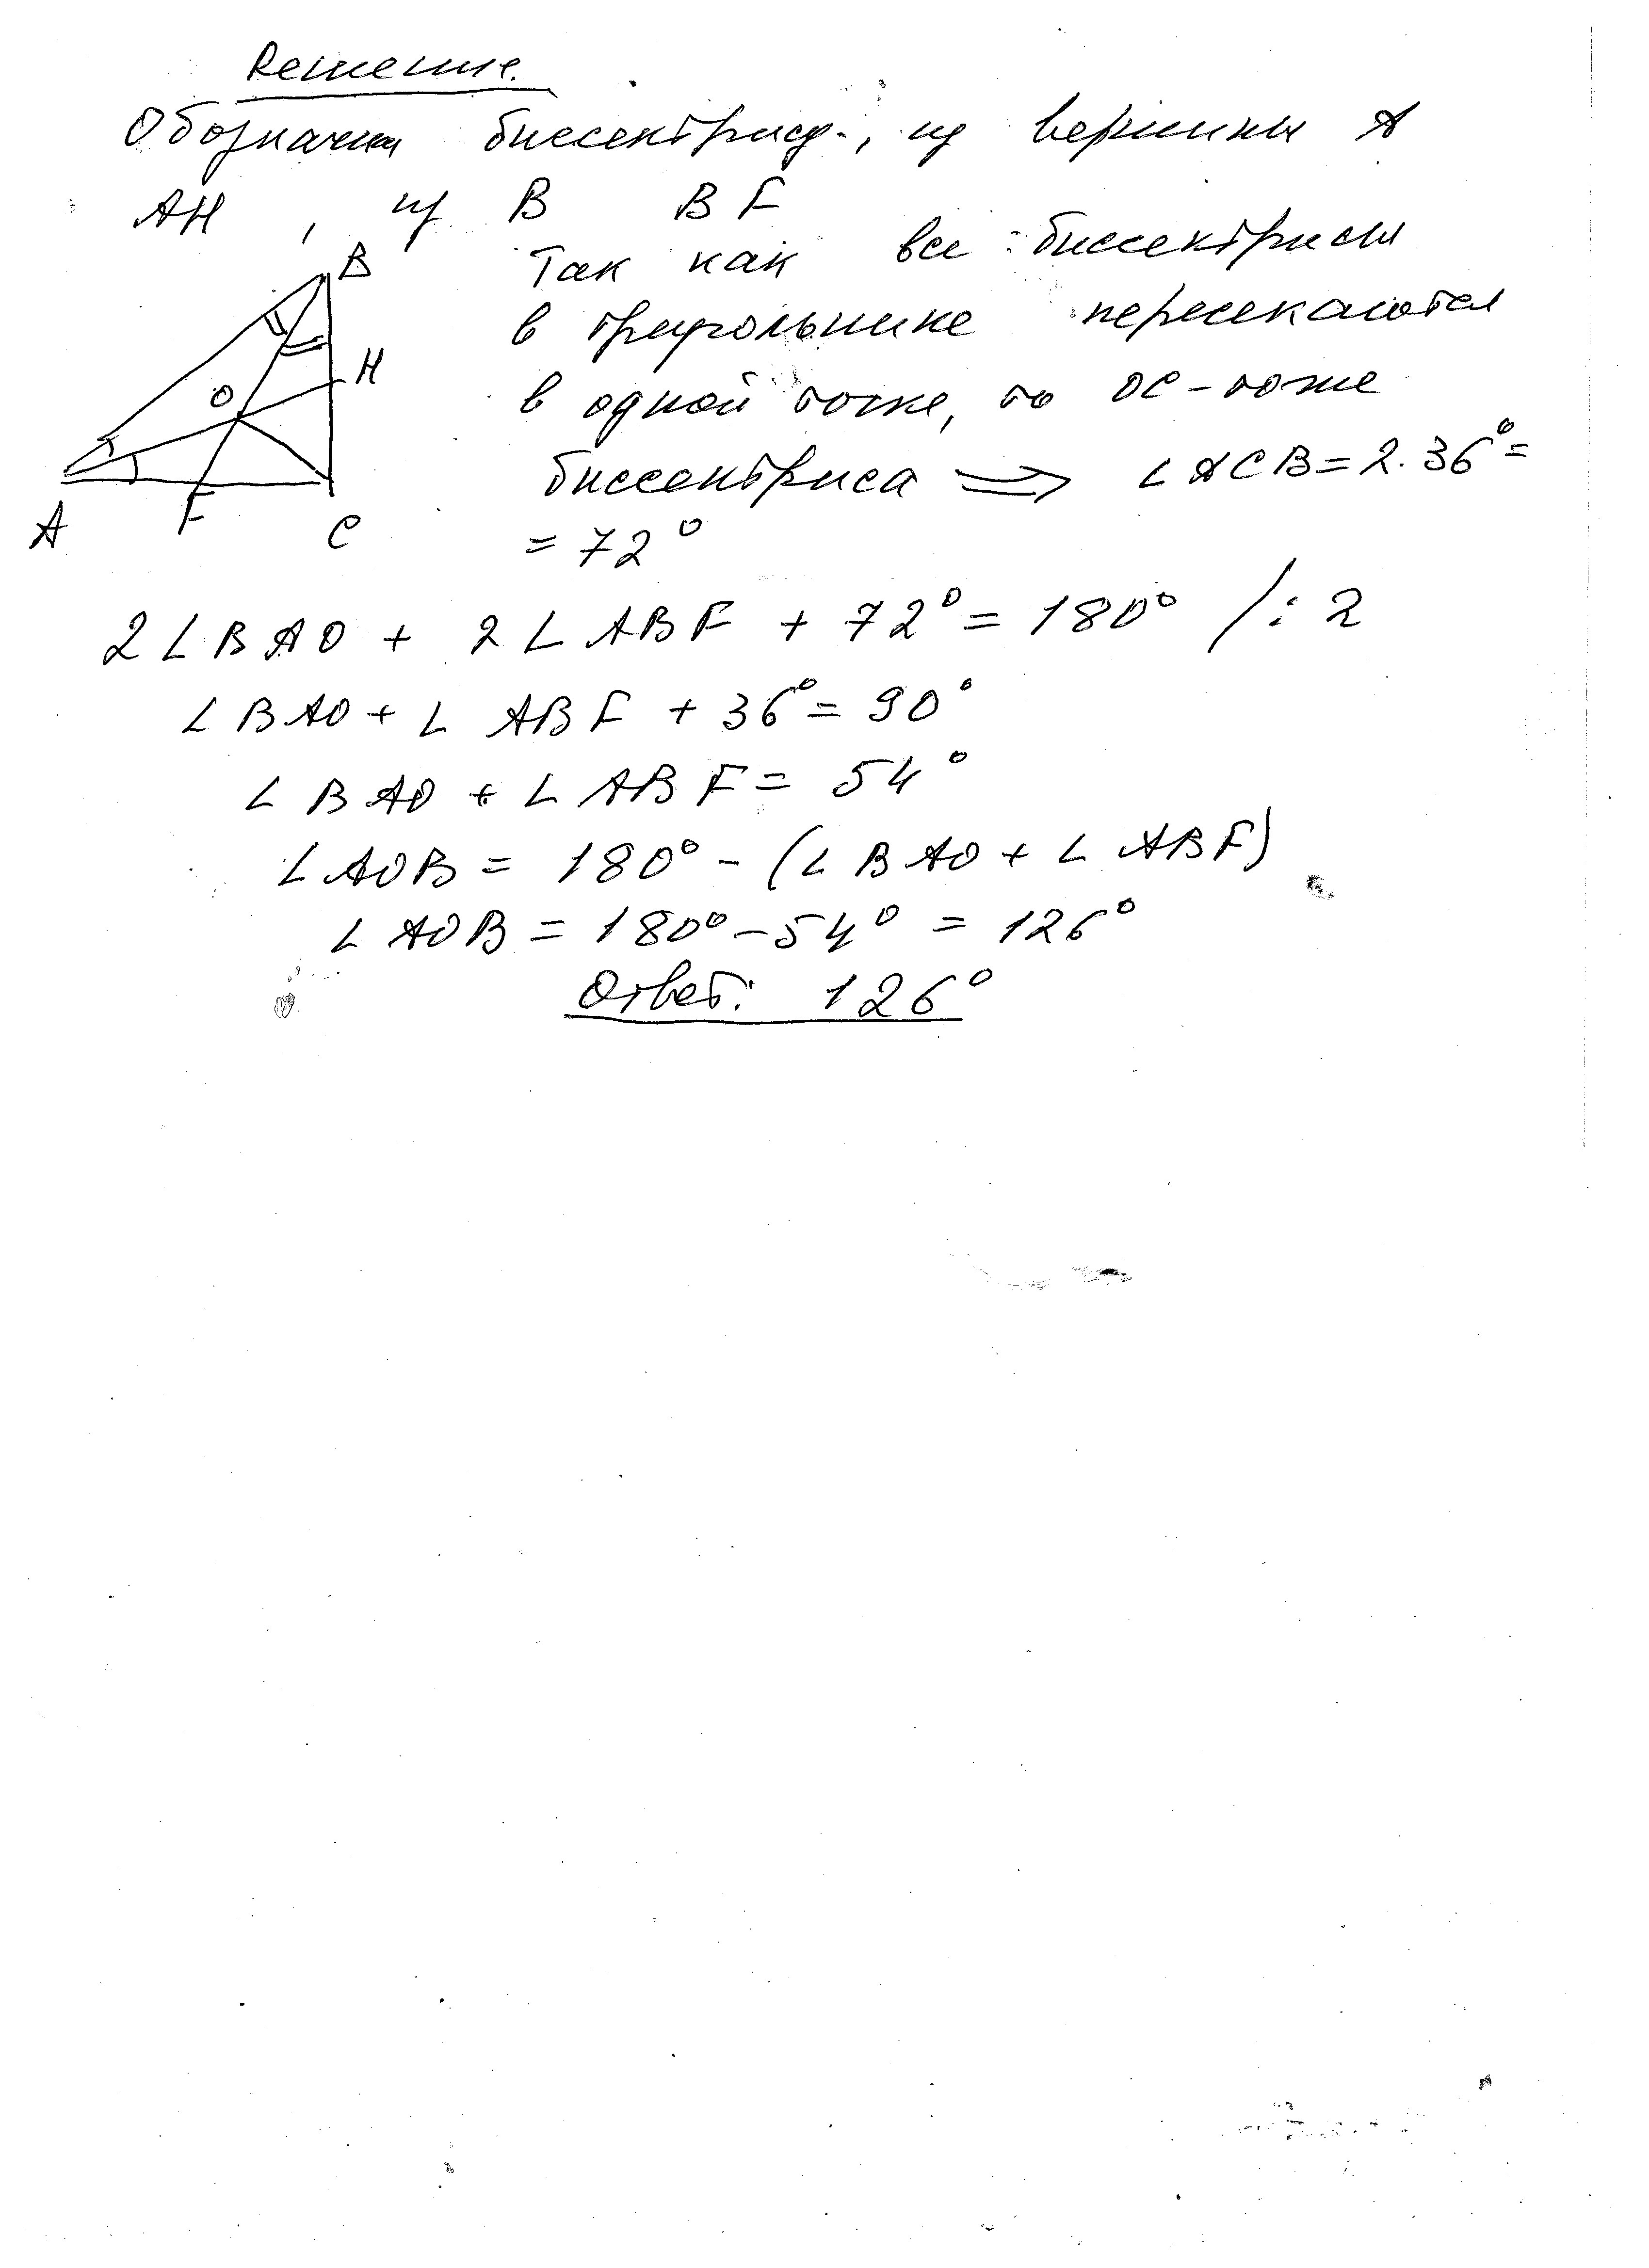 Решение.
Обозначим биссектрису, из вершины A
AH , из B BF
B
Так как все биссектрисы
в треугольнике пересекаются
H
O
в одной точке, то OC - тоже
биссектриса ⟹ ∠ACB = 2·36° =
A F C
= 72°
2∠BAO + 2∠ABF + 72° = 180° /:2
∠BAO + ∠ABF + 36° = 90°
∠BAO + ∠ABF = 54°
∠AOB = 180° - (∠BAO + ∠ABF)
∠AOB = 180° - 54° = 126°
Ответ: 126°